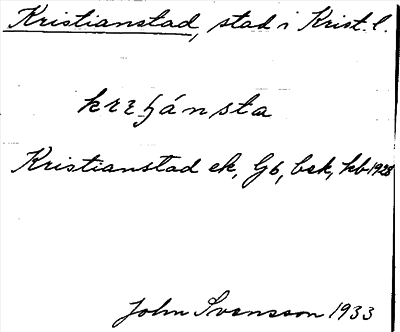 Kristianstad, stad i Krist. l.
Kristianstad ek, Gb, bsk, hb 1928
John Svensson 1933